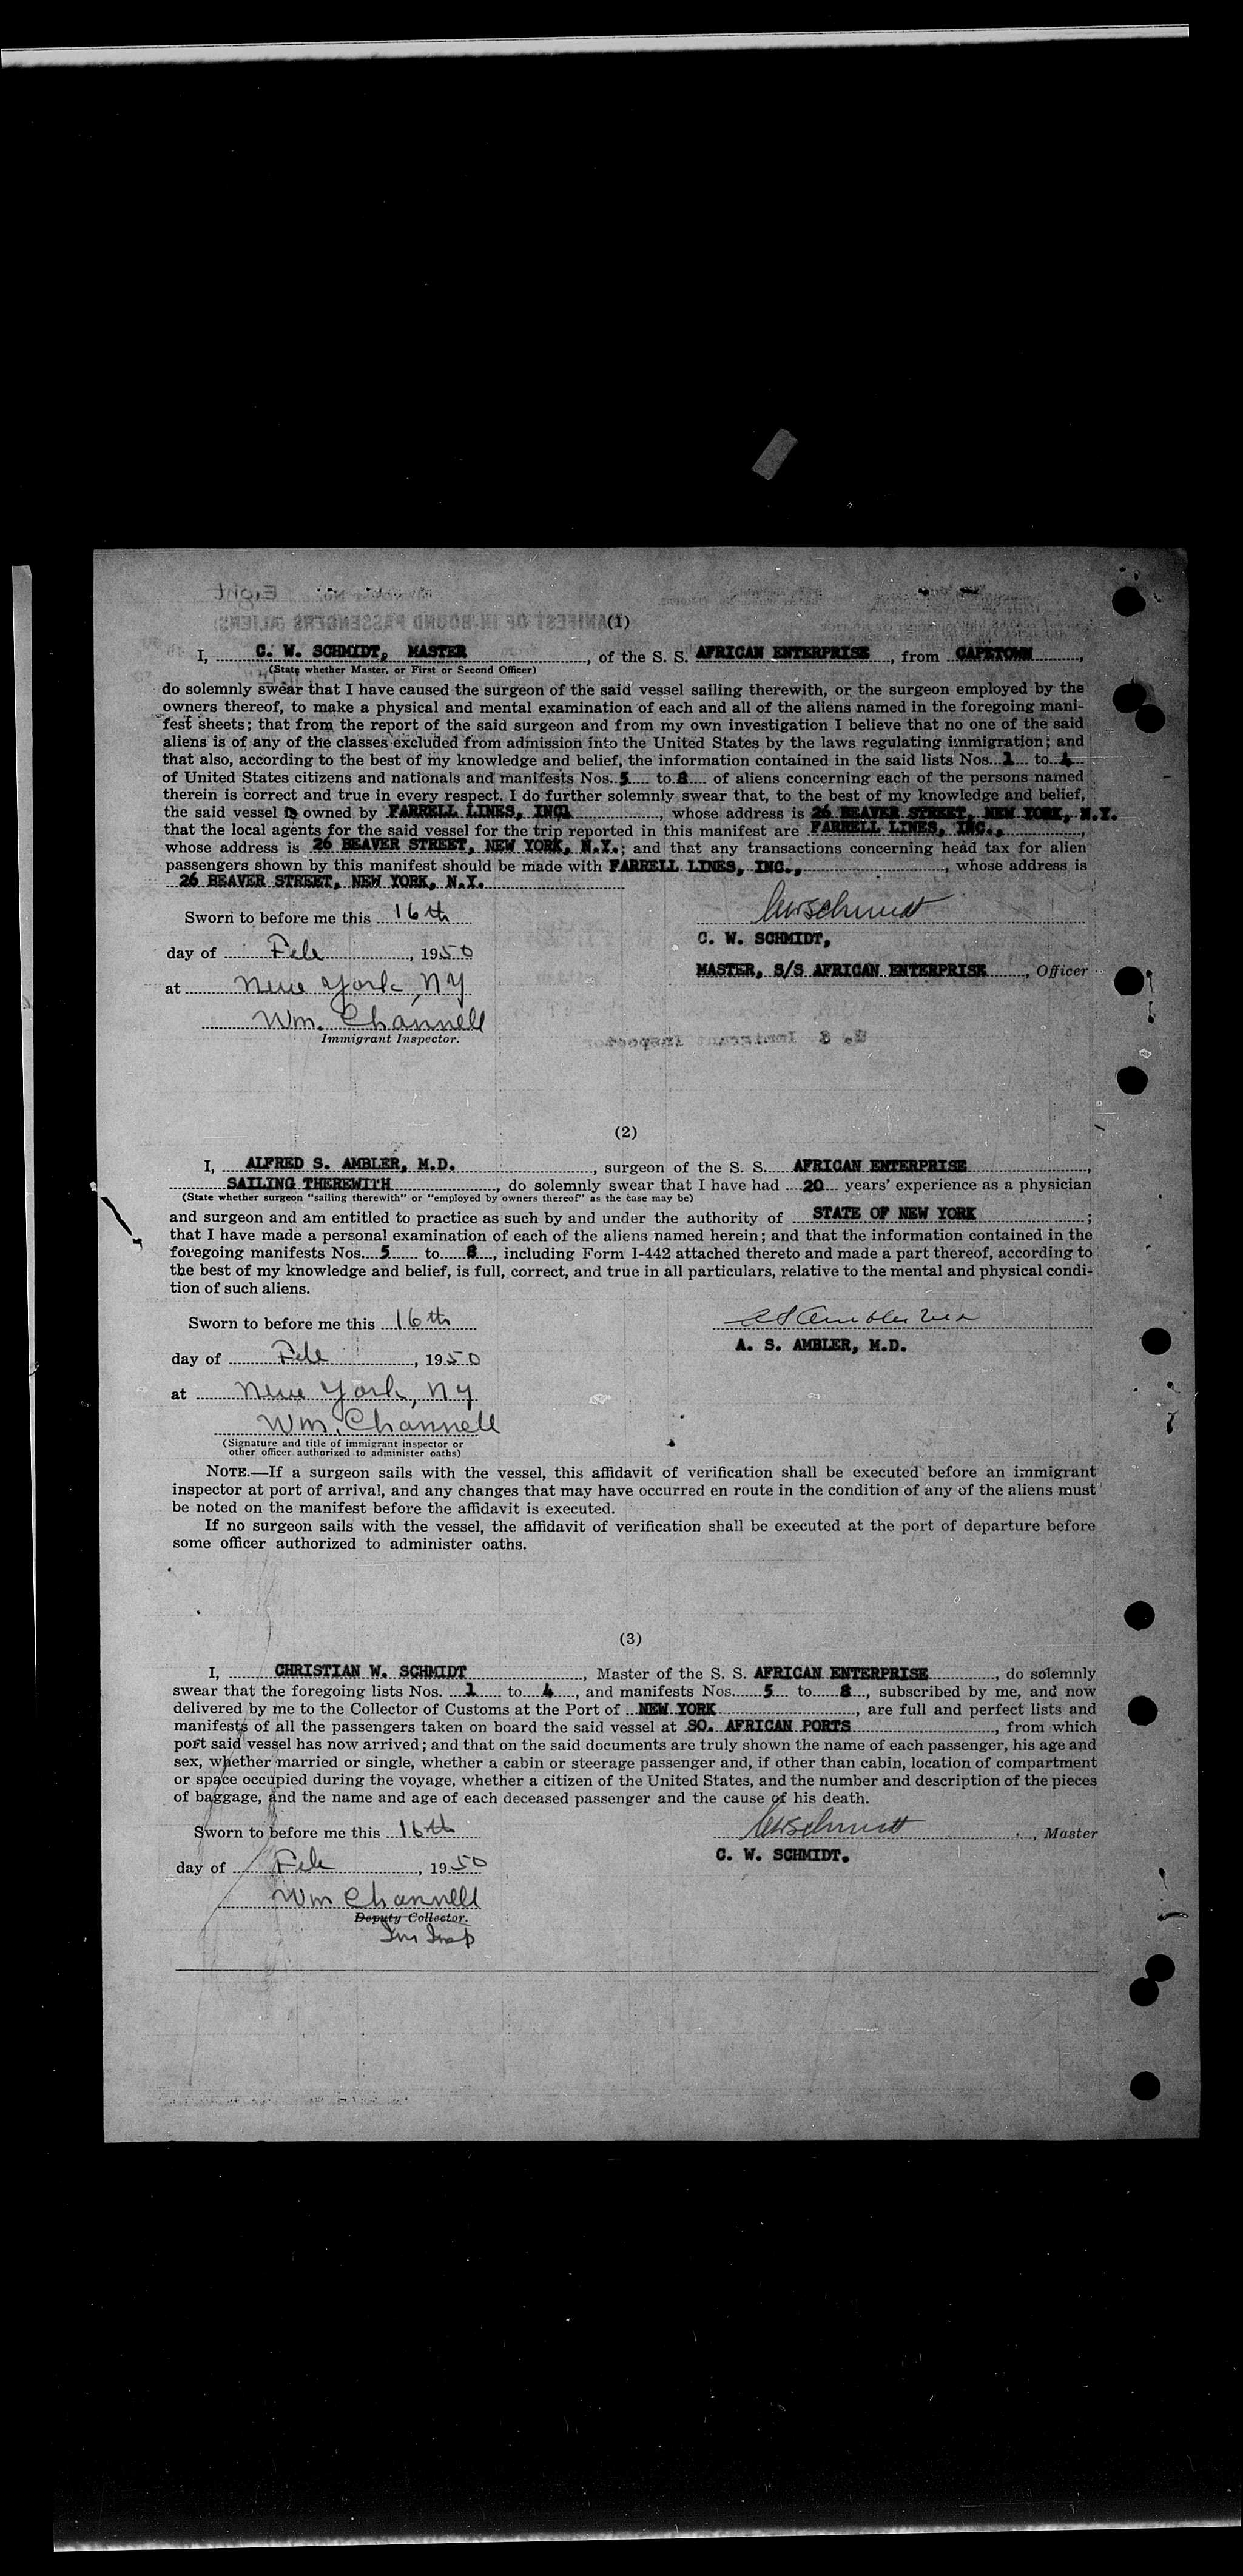 Eight
MANIFEST OF IN-BOUND PASSENGERS (ALIENS)
(1)
I, C. W. SCHMIDT, MASTER, of the S. S. AFRICAN ENTERPRISE, from CAPETOWN,
(State whether Master, or First or Second Officer)
do solemnly swear that I have caused the surgeon of the said vessel sailing therewith, or the surgeon employed by the
owners thereof, to make a physical and mental examination of each and all of the aliens named in the foregoing mani-
fest sheets; that from the report of the said surgeon and from my own investigation I believe that no one of the said
aliens is of any of the classes excluded from admission into the United States by the laws regulating immigration; and
that also, according to the best of my knowledge and belief, the information contained in the said lists Nos. 1 to 4
of United States citizens and nationals and manifests Nos. 5 to 8 of aliens concerning each of the persons named
therein is correct and true in every respect. I do further solemnly swear that, to the best of my knowledge and belief,
the said vessel is owned by FARRELL LINES, INC., whose address is 26 BEAVER STREET, NEW YORK, N.Y.
that the local agents for the said vessel for the trip reported in this manifest are FARRELL LINES, INC.,
whose address is 26 BEAVER STREET, NEW YORK, N.Y.; and that any transactions concerning head tax for alien
passengers shown by this manifest should be made with FARRELL LINES, INC., whose address is
26 BEAVER STREET, NEW YORK, N.Y.
Sworn to before me this 16th
CWSchmidt
C. W. SCHMIDT,
day of Feb, 1950
MASTER, S/S AFRICAN ENTERPRISE, Officer
at New York, NY
Wm. Channell
Immigrant Inspector.
U. S Immigrant Inspector
(2)
I, ALFRED S. AMBLER, M.D., surgeon of the S. S. AFRICAN ENTERPRISE,
SAILING THEREWITH, do solemnly swear that I have had 20 years' experience as a physician
(State whether surgeon "sailing therewith" or "employed by owners thereof" as the case may be)
and surgeon and am entitled to practice as such by and under the authority of STATE OF NEW YORK;
that I have made a personal examination of each of the aliens named herein; and that the information contained in the
foregoing manifests Nos. 5 to 8, including Form I-442 attached thereto and made a part thereof, according to
the best of my knowledge and belief, is full, correct, and true in all particulars, relative to the mental and physical condi-
tion of such aliens.
Sworn to before me this 16th
A S Ambler MD
A. S. AMBLER, M.D.
day of Feb, 1950
at New York, NY
Wm. Channell
(Signature and title of immigrant inspector or
other officer authorized to administer oaths)
NOTE.—If a surgeon sails with the vessel, this affidavit of verification shall be executed before an immigrant
inspector at port of arrival, and any changes that may have occurred en route in the condition of any of the aliens must
be noted on the manifest before the affidavit is executed.
If no surgeon sails with the vessel, the affidavit of verification shall be executed at the port of departure before
some officer authorized to administer oaths.
(3)
I, CHRISTIAN W. SCHMIDT, Master of the S. S. AFRICAN ENTERPRISE, do solemnly
swear that the foregoing lists Nos. 1 to 4, and manifests Nos. 5 to 8, subscribed by me, and now
delivered by me to the Collector of Customs at the Port of NEW YORK, are full and perfect lists and
manifests of all the passengers taken on board the said vessel at SO. AFRICAN PORTS, from which
port said vessel has now arrived; and that on the said documents are truly shown the name of each passenger, his age and
sex, whether married or single, whether a cabin or steerage passenger and, if other than cabin, location of compartment
or space occupied during the voyage, whether a citizen of the United States, and the number and description of the pieces
of baggage, and the name and age of each deceased passenger and the cause of his death.
Sworn to before me this 16th
CWSchmidt, Master
C. W. SCHMIDT.
day of Feb, 1950
Wm Channell
Deputy Collector.
Im Insp